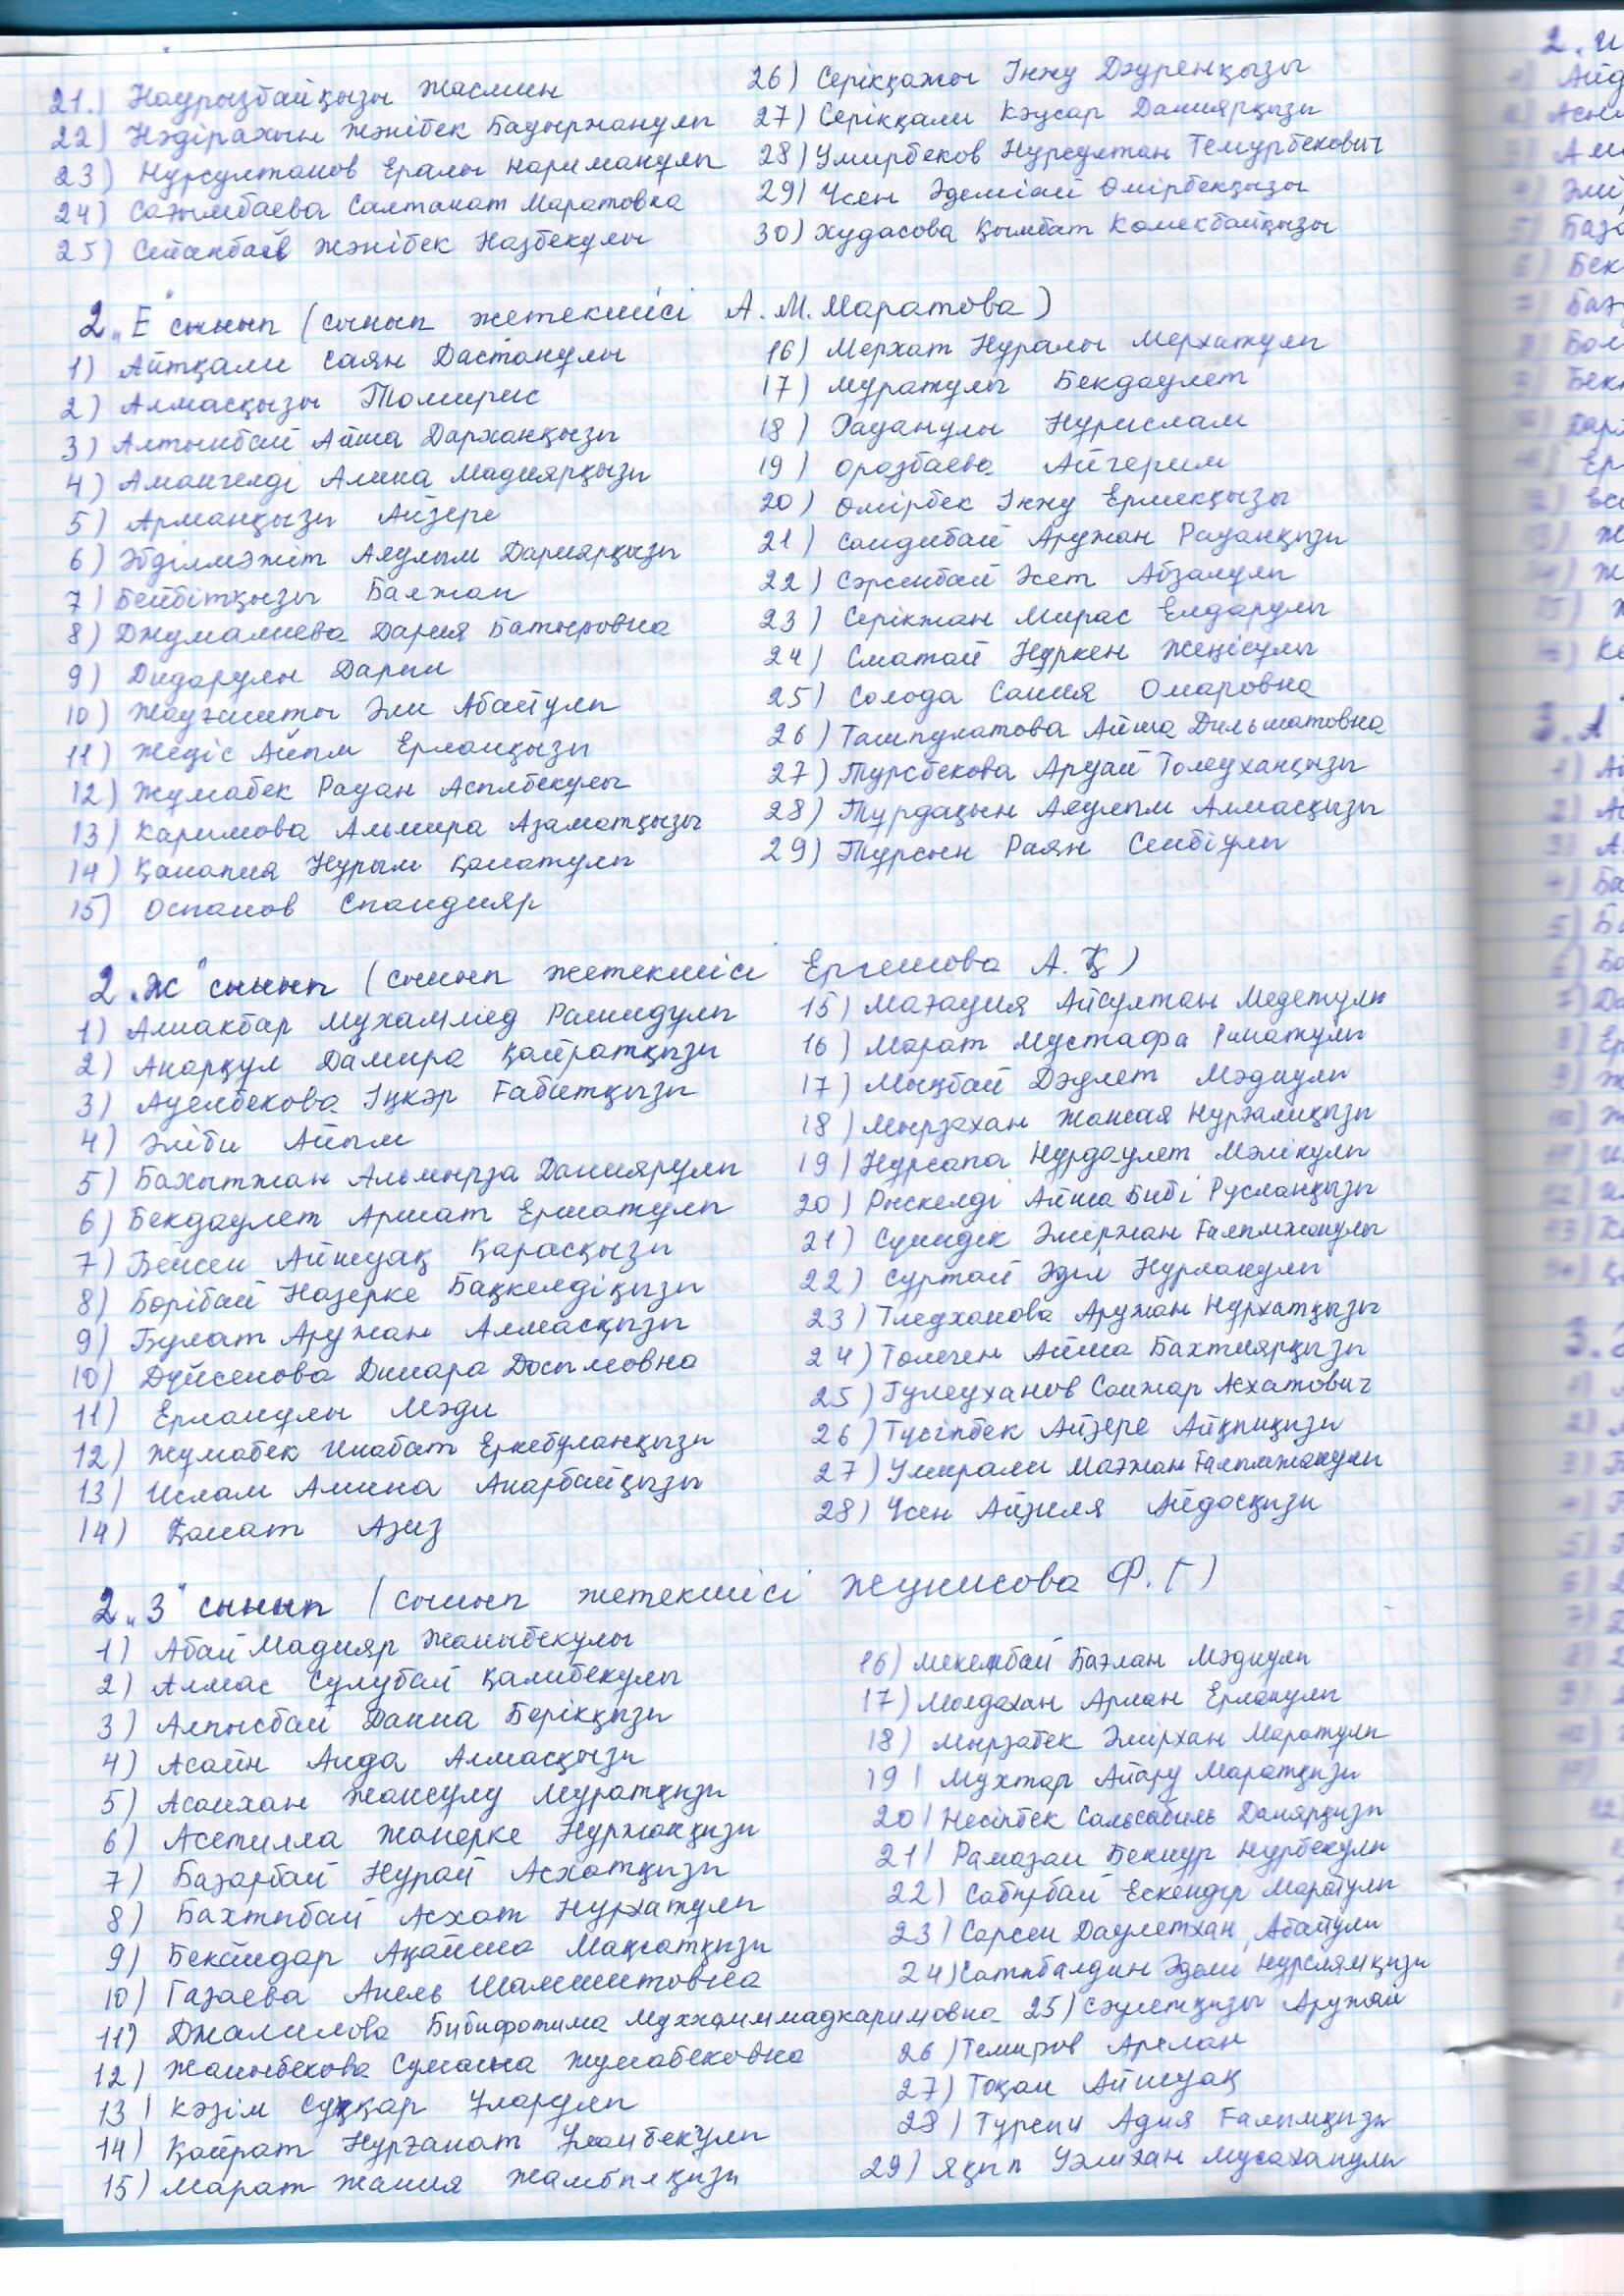 21.) Наурызбайқызы Жасмин
22) Нәдірахын Жәнібек Бауыржанұлы
23) Нурсултанов Ералы Нариманұлы
24) Сағымбаева Салтанат Маратовна
25) Сейтакбаев Жәнібек Назбекұлы
26) Серікқажы Інжу Дәуренқызы
27) Серікқали Кәусар Даниярқызы
28) Умирбеков Нурсултан Темурбекович
29) Үсен Әдеміай Өмірбекқызы
30) Худасова Қымбат Комекбайқызы
2 „Е" сынып (сынып жетекшісі А.М. Маратова)
1) Айтқали Саян Дастанұлы
2) Алмасқызы Томирис
3) Алтынбай Айша Дарханқызы
4) Амангелді Алина Мадиярқызы
5) Арманқызы Айзере
6) Әбділмәжіт Аяулым Дариярқызы
7) Бейбітқызы Балжан
8) Джумалиева Дария Батыровна
9) Дидарұлы Дарын
10) Жауғашты Әли Абайұлы
11) Жедіс Айым Ерланқызы
12) Жұмабек Рауан Асылбекұлы
13) Каримова Альмира Азаматқызы
14) Қанапия Нұрым Қанатұлы
15) Оспанов Спандияр
16) Мерхат Нұралы Мерхатұлы
17) Мұратұлы Бекдаулет
18) Рауанұлы Нурислам
19) Оразбаева Айгерим
20) Өмірбек Інжу Ермекқызы
21) Саидибай Аружан Рауанқызы
22) Сәрсенбай Әсет Абзалұлы
23) Серікжан Мирас Елдарұлы
24) Сматай Нұркен Жеңісұлы
25) Солода Сания Омаровна
26) Ташпулатова Айша Дильшатовна
27) Турсбекова Аруай Толеуханқызы
28) Тұрдақын Аяулым Алмасқызы
29) Тұрсын Раян Сенбіұлы
2 „Ж" сынып (сынып жетекшісі Ергешова А.Қ)
1) Алиакбар Мухаммед Рашидұлы
2) Анарқұл Дамира Қайратқызы
3) Ауелбекова Іңкәр Ғабитқызы
4) Әліби Айым
5) Бахытжан Альмырза Даниярұлы
6) Бекдаулет Аршат Ершатұлы
7) Бейсен Айшуақ Қарасқызы
8) Бөрібай Назерке Бақкелдіқызы
9) Булат Аружан Алмасқызы
10) Дүйсенова Динара Досымовна
11) Ерланұлы Мәди
12) Жұмабек Инабат Еркебұланқызы
13) Ислам Амина Анарбайқызы
14) Қанат Азиз
15) Мағауия Айсұлтан Медетұлы
16) Марат Мустафа Ринатұлы
17) Мыңбай Дәулет Мәдиұлы
18) Мырзахан Жания Нұрғалиқызы
19) Нұрсапа Нұрдаулет Мәлікұлы
20) Рыскелді Айша Бибі Русланқызы
21) Сүиндік Әміржан Ғалымжанұлы
22) Сұртай Әділ Нұрланұлы
23) Тлеуханова Аружан Нұрхатқызы
24) Төлеген Айша Бахтиярқызы
25) Тулеуханов Санжар Асхатович
26) Түсіпбек Айзере Айқынқызы
27) Умирали Мағжан Ғалымжанұлы
28) Үсен Айзиля Айдосқызы
2 „З" сынып (сынып жетекшісі Жунисова Ф.Г)
1) Абай Мадияр Жаныбекұлы
2) Алмас Сұлубай Қалибекұлы
3) Алпысбай Дания Берікқызы
4) Асайн Аида Алмасқызы
5) Асанхан Жансулу Мұратқызы
6) Асетилла Жанерке Нұржанқызы
7) Базарбай Нұрай Асхатқызы
8) Бахтыбай Асхат Нұрхатұлы
9) Бексиндар Ақайша Мақсатқызы
10) Газаева Анель Шамшитовна
11) Джалилова Бибифатима Мухаммадкаримовна
12) Жаныбекова Сумайна Жумабековна
13) Кәзім Сұңқар Ұларұлы
14) Қайрат Нұрғанат Ұланбекұлы
15) Марат Жания Жамбылқызы
16) Мекембай Бағлан Мәдиұлы
17) Молдахан Арлан Ерланұлы
18) Мырзабек Әмірхан Маратұлы
19) Мұхтар Айару Маратқызы
20) Несіпбек Сальсабиль Даниярқызы
21) Рамазан Бекнұр Нұрбекұлы
22) Сабырбай Ескендір Маратұлы
23) Сәрсен Даулетхан Абайұлы
24) Сатыбалдин Әдемі Нурслямқызы
25) Сәулетқызы Аружан
26) Темиров Арслан
27) Тоқан Айшуақ
28) Турсын Адия Ғалымқызы
29) Яқып Уәлихан Мусаханұлы